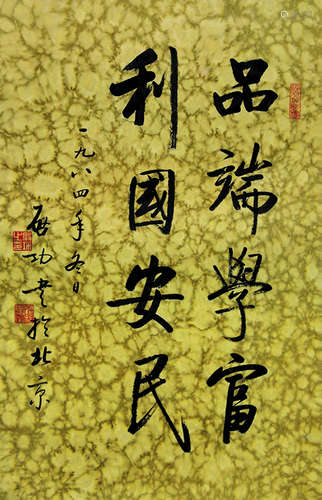 品端學富
利國安民
一九八四年冬日
啟功书於北京